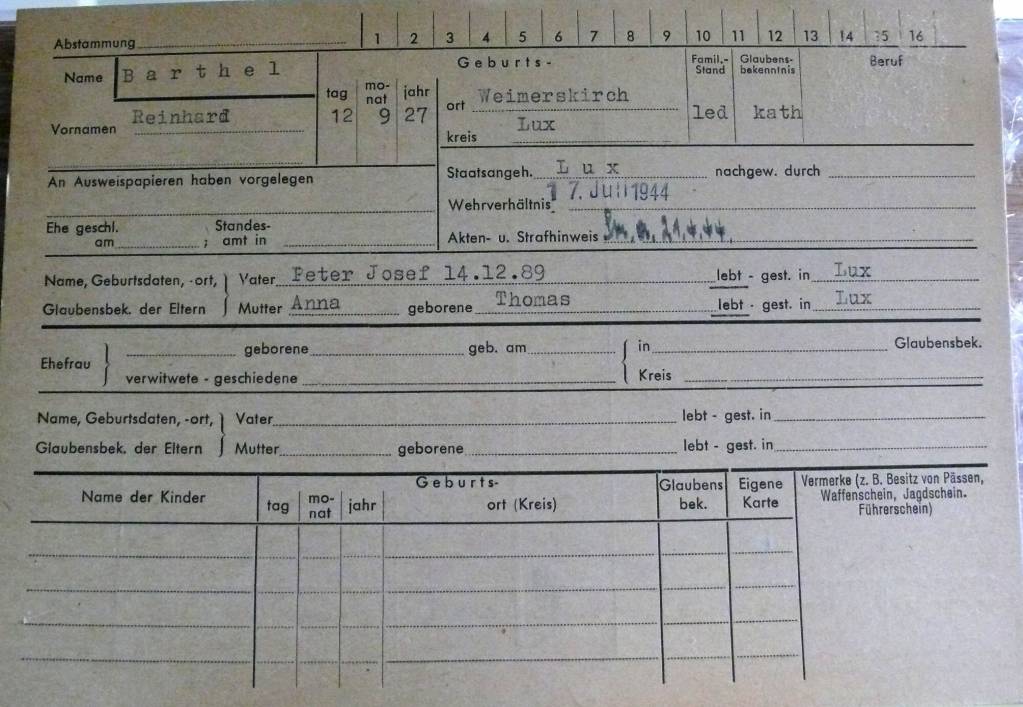 Abstammung 1 2 3 4 5 6 7 8 9 10 11 12 13 14 15 16
Name Barthel
Vornamen Reinhard
Geburts-
tag mo-nat jahr
12 9 27
ort Weimerskirch
kreis Lux
Famil.-Stand Glaubens-bekenntnis Beruf
led kath
An Ausweispapieren haben vorgelegen
Staatsangeh. Lux nachgew. durch
Wehrverhältnis 17. Juli 1944
Ehe geschl. am ; Standes-amt in
Akten- u. Strafhinweis 21.4.44.
Name, Geburtsdaten, -ort, Vater Peter Josef 14.12.89 lebt - gest. in Lux
Glaubensbek. der Eltern Mutter Anna geborene Thomas lebt - gest. in Lux
Ehefrau geborene geb. am in Glaubensbek.
verwitwete - geschiedene Kreis
Name, Geburtsdaten, -ort, Vater lebt - gest. in
Glaubensbek. der Eltern Mutter geborene lebt - gest. in
Name der Kinder
Geburts-
tag mo-nat jahr ort (Kreis)
Glaubens bek.
Eigene Karte
Vermerke (z. B. Besitz von Pässen,
Waffenschein, Jagdschein.
Führerschein)